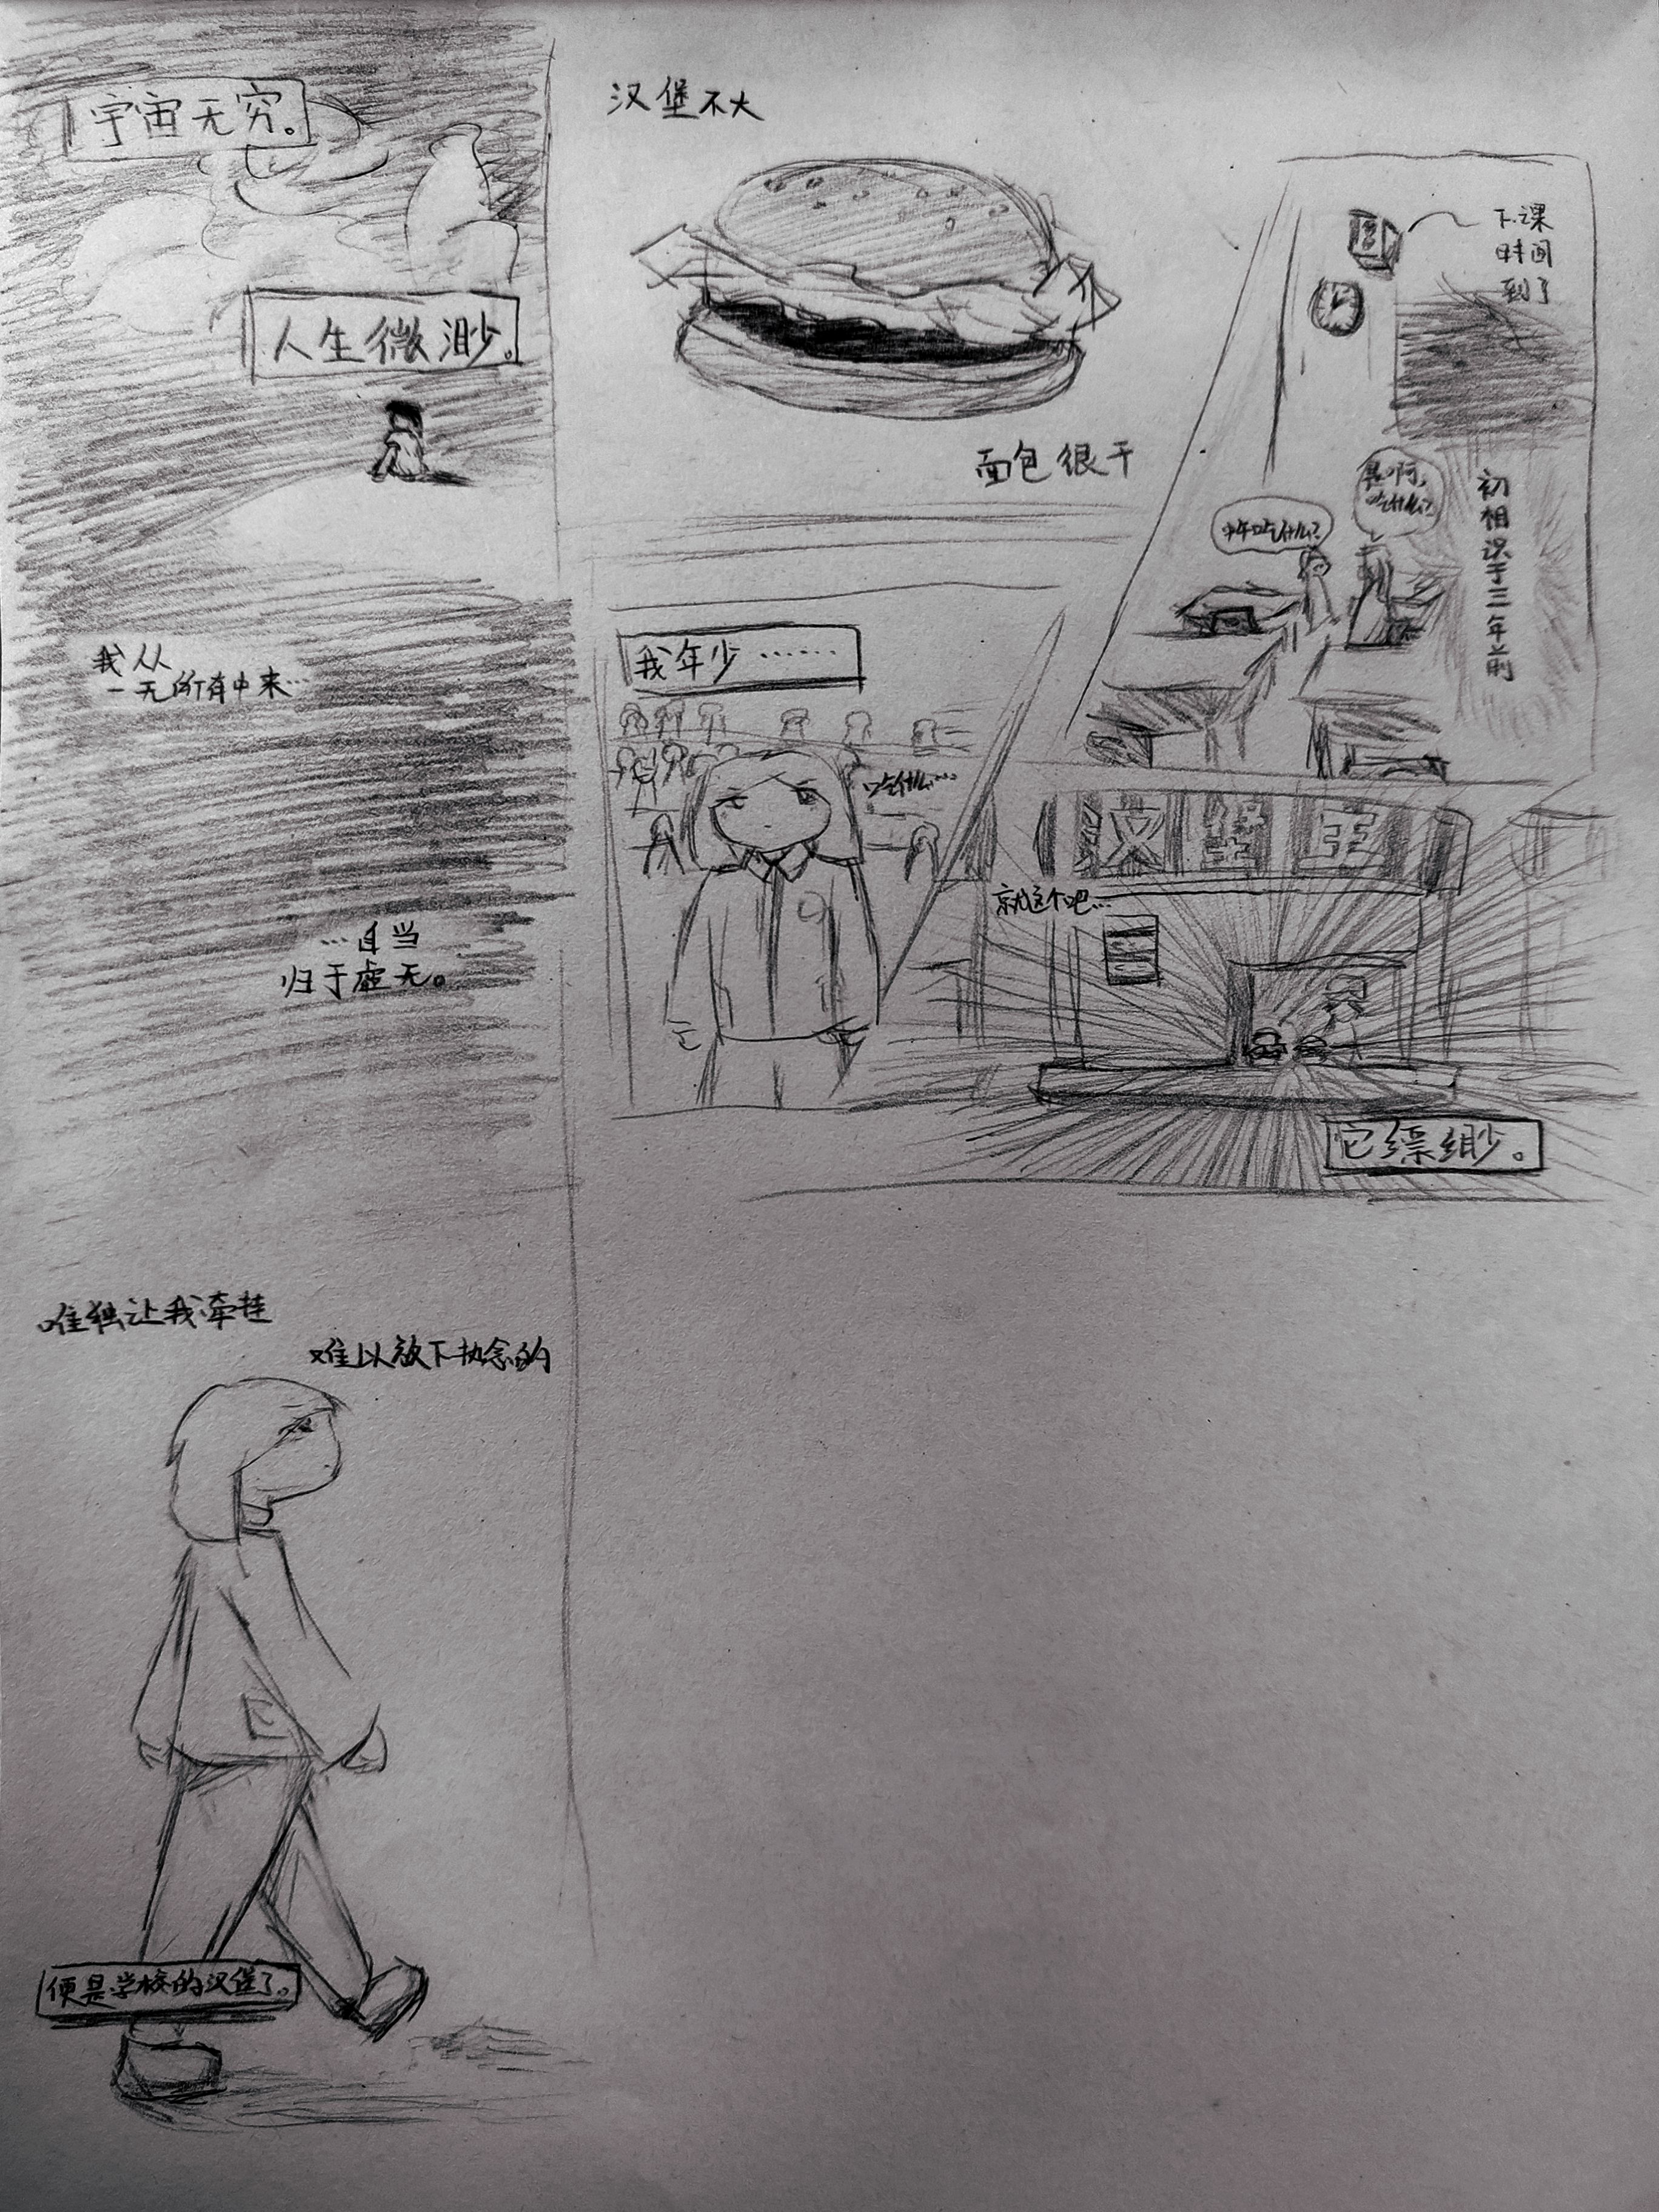 宇宙无穷。
人生微渺。
我从
一无所有中来…
…自当
归于虚无。
唯独让我牵挂
难以放下执念的
便是学校的汉堡了。
汉堡不大
面包很干
下课
时间
到了
初相识于三年前
中午吃什么?
是啊,
吃什么?
我年少……
吃什么…
汉堡王
就这个吧…
它缥缈。